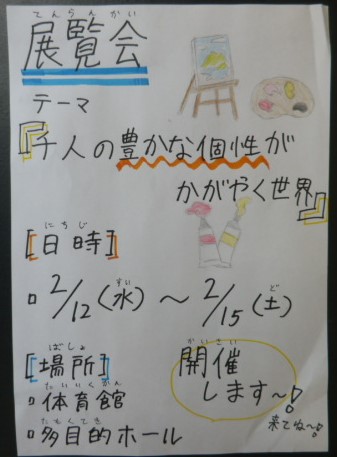 てんらんかい
展覧会
テーマ
『千人の豊かな個性が
かがやく世界』
にちじ
[日時]
▫ 2/12(水) ～ 2/15(土)
すい ど
ばしょ
[場所]
かいさい
開催
します～!
たいいくかん
▫体育館
たもくてき
▫多目的ホール
来てね～!